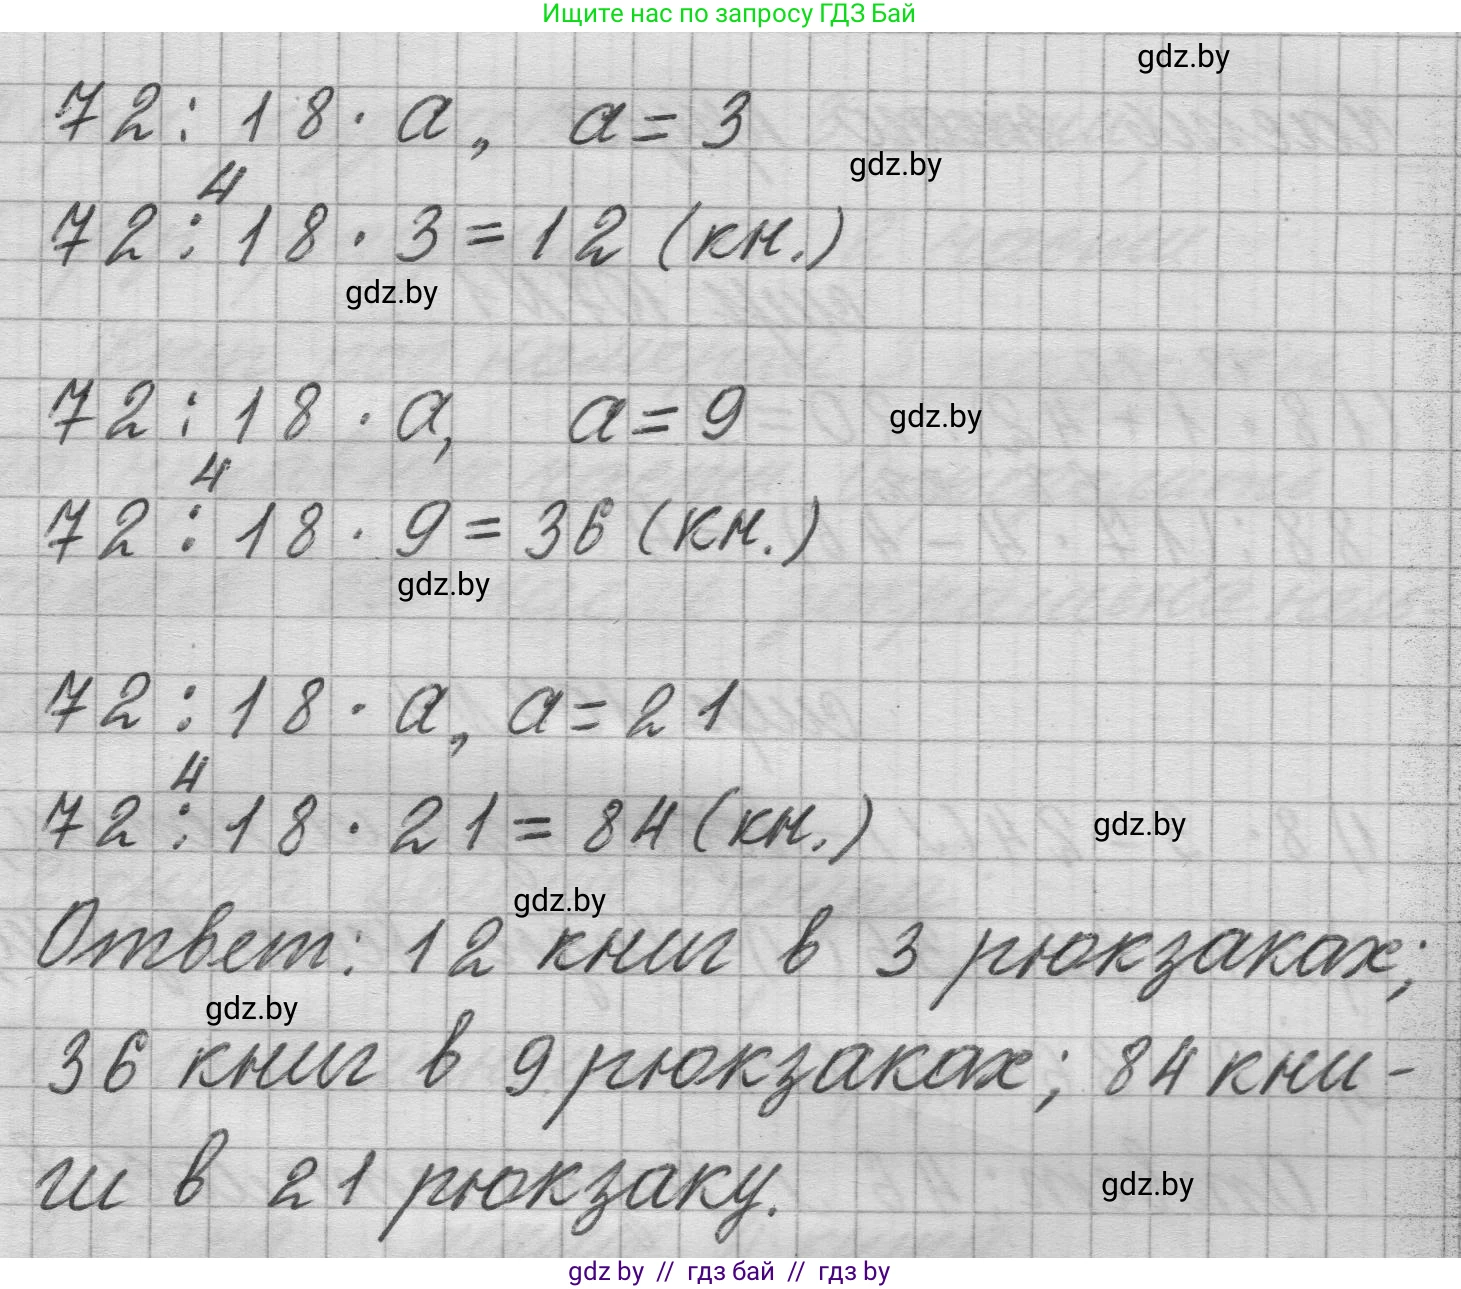 Ищите нас по запросу ГДЗ Бай
gdz.by
72 : 18 · a, a = 3
gdz.by
4
72 : 18 · 3 = 12 (кн.)
gdz.by
72 : 18 · a, a = 9
gdz.by
4
72 : 18 · 9 = 36 (кн.)
gdz.by
72 : 18 · a, a = 21
4
72 : 18 · 21 = 84 (кн.)
gdz.by
gdz.by
Ответ: 12 книг в 3 рюкзаках;
gdz.by
36 книг в 9 рюкзаках; 84 кни-
ги в 21 рюкзаку.
gdz.by
gdz by // гдз бай // гдз by